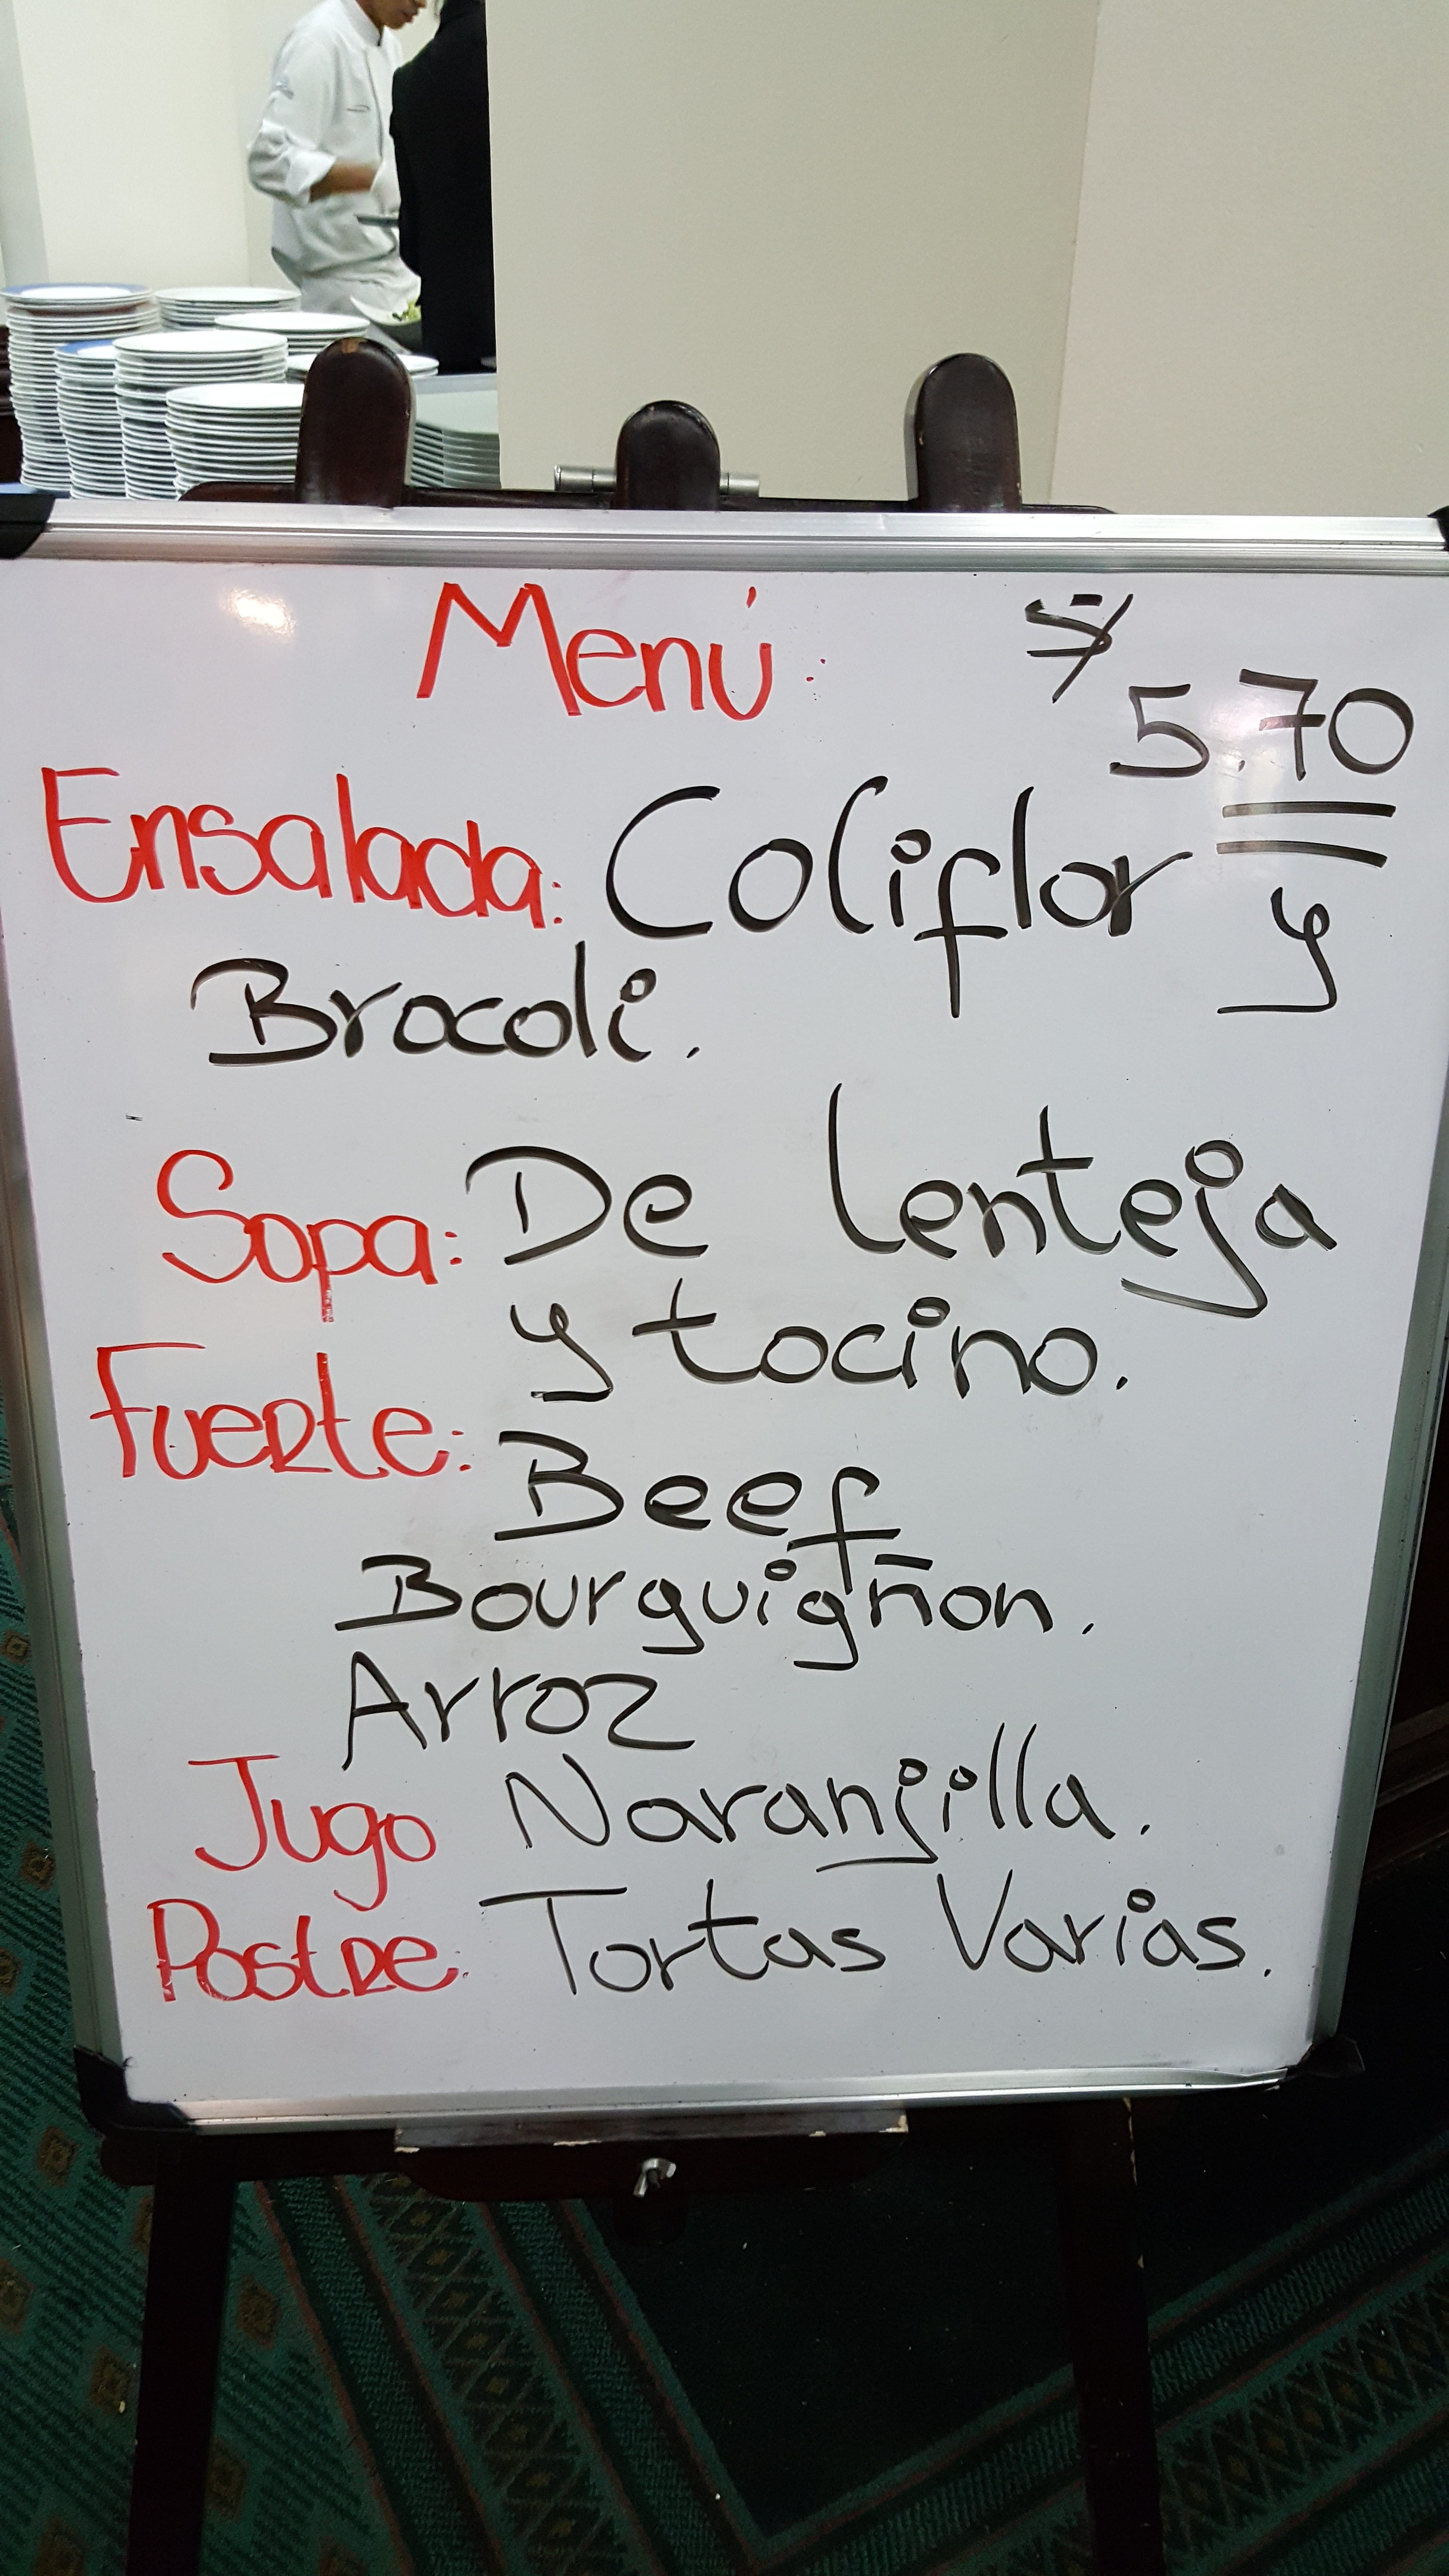 Menú:
$ 5.70
Ensalada: Coliflor y
Brocoli.
Sopa: De lenteja
y tocino.
Fuerte: Beef
Bourguigñon.
Arroz
Jugo Naranjilla.
Postre. Tortas Varias.